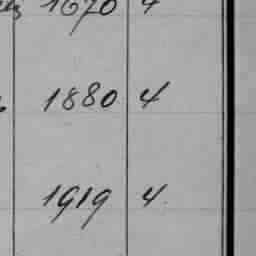 1670 4
1880 4
1919 4